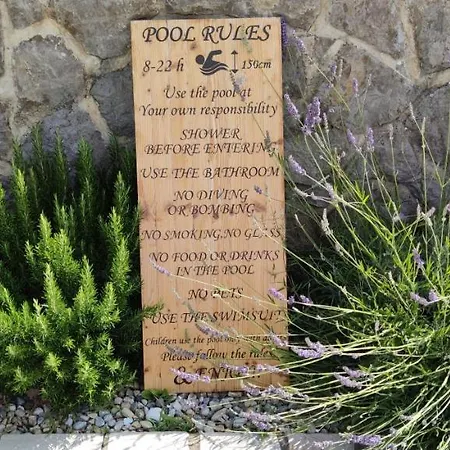 POOL RULES
8-22 h 150cm
Use the pool at
Your own responsibility
SHOWER
BEFORE ENTERING
USE THE BATHROOM
NO DIVING
OR BOMBING
NO SMOKING, NO GLASS
NO FOOD OR DRINKS
IN THE POOL
NO PETS
USE THE SWIMSUIT
Children use the pool only with
Please follow the rules
& ENJOY